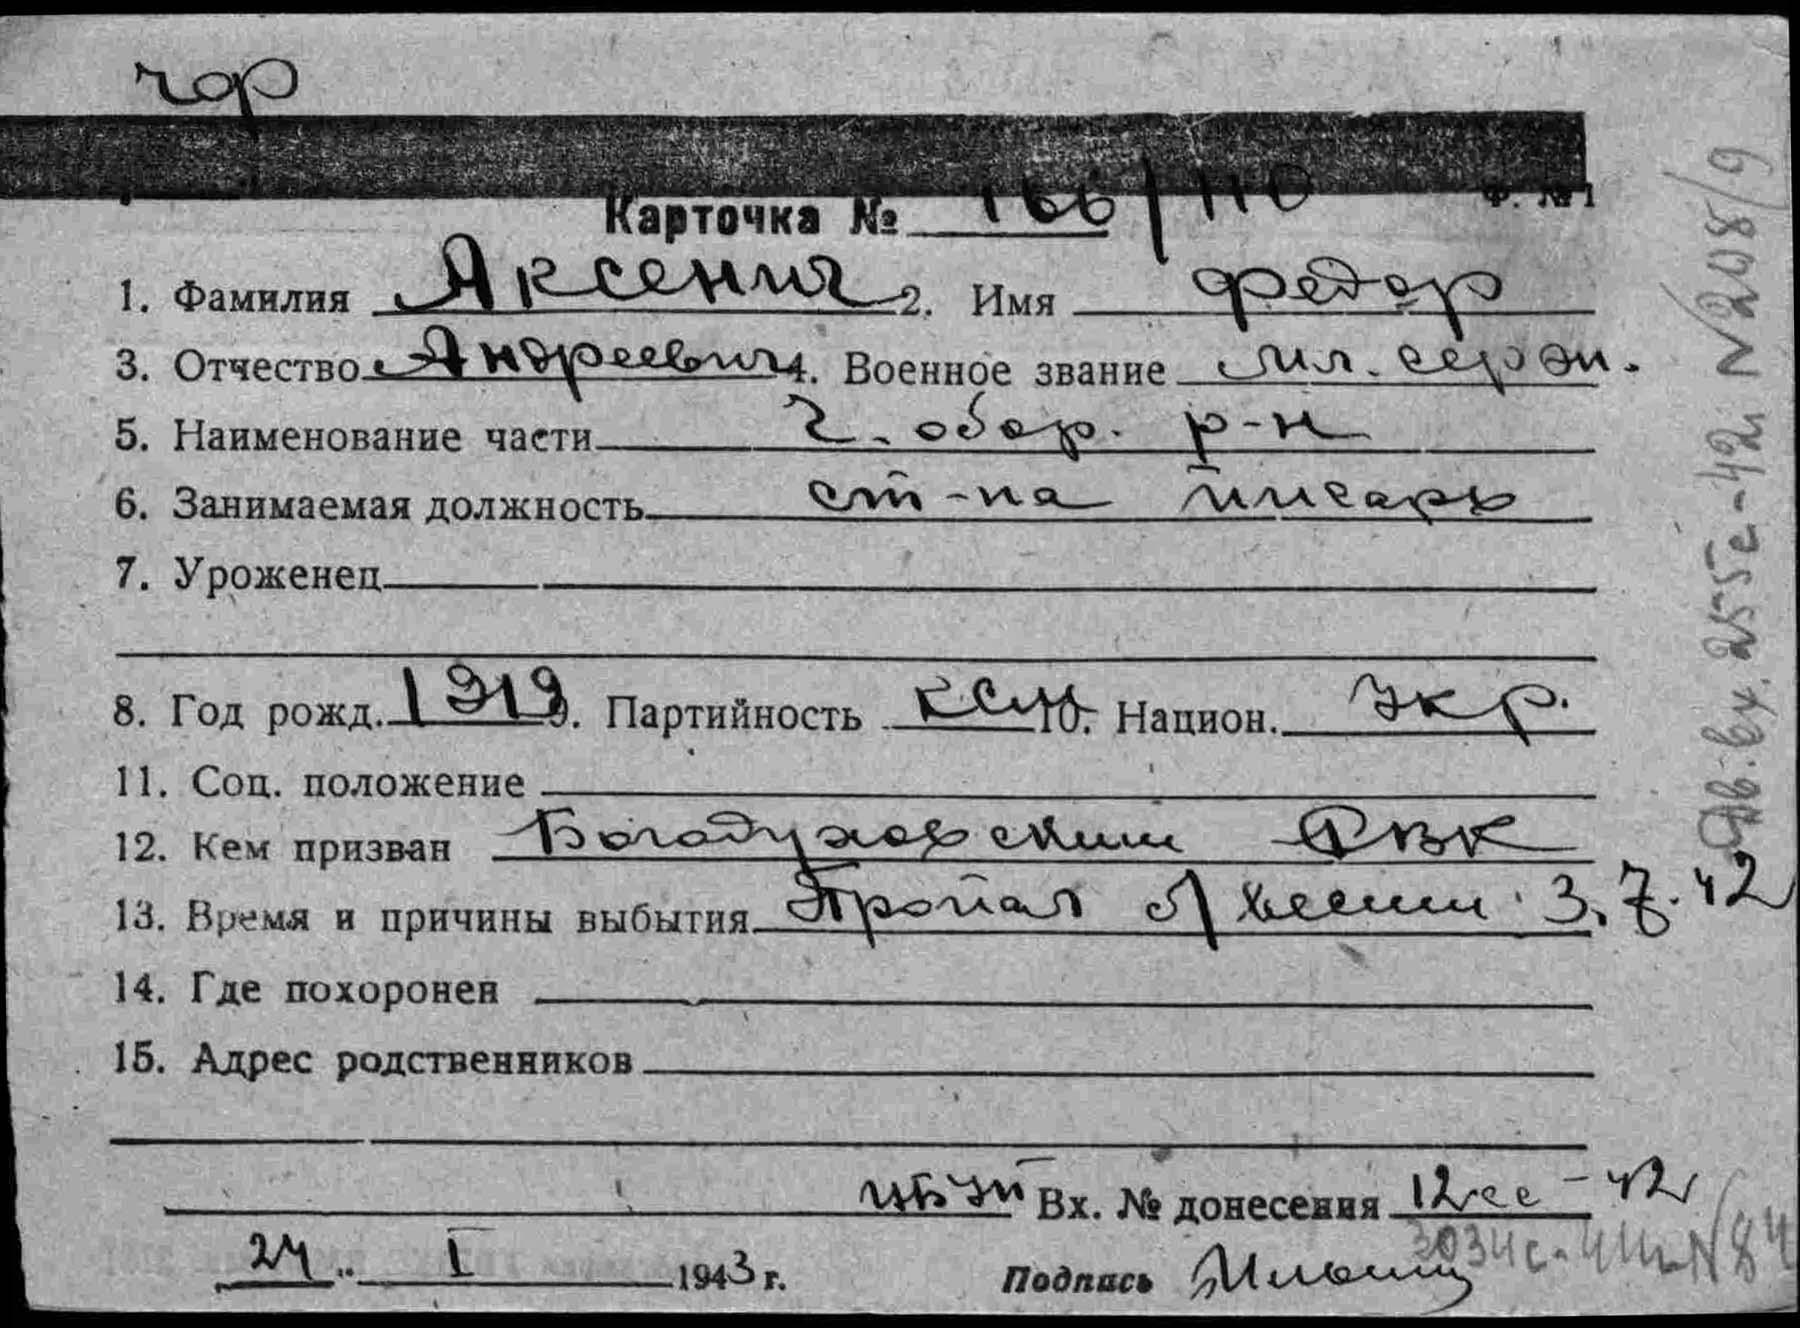 чор
Ф. №1
Карточка № 166/110
1. Фамилия Аксенич 2. Имя Федор
3. Отчество Андреевич 4. Военное звание мл. серж.
5. Наименование части Ч. обор. р-н
6. Занимаемая должность ст-на писарь
7. Уроженец
8. Год рожд. 1919 9. Партийность ксм 10. Национ. Укр.
11. Соц. положение
12. Кем призван Богодуховским РВК
13. Время и причины выбытия Пропал б/вести 3.7.42
14. Где похоронен
15. Адрес родственников
Вх. № донесения 12сс-42
24 I 1943 г. Подпись
3034с-44г. №84
Дв. вх. 2555с-42г. №208/9